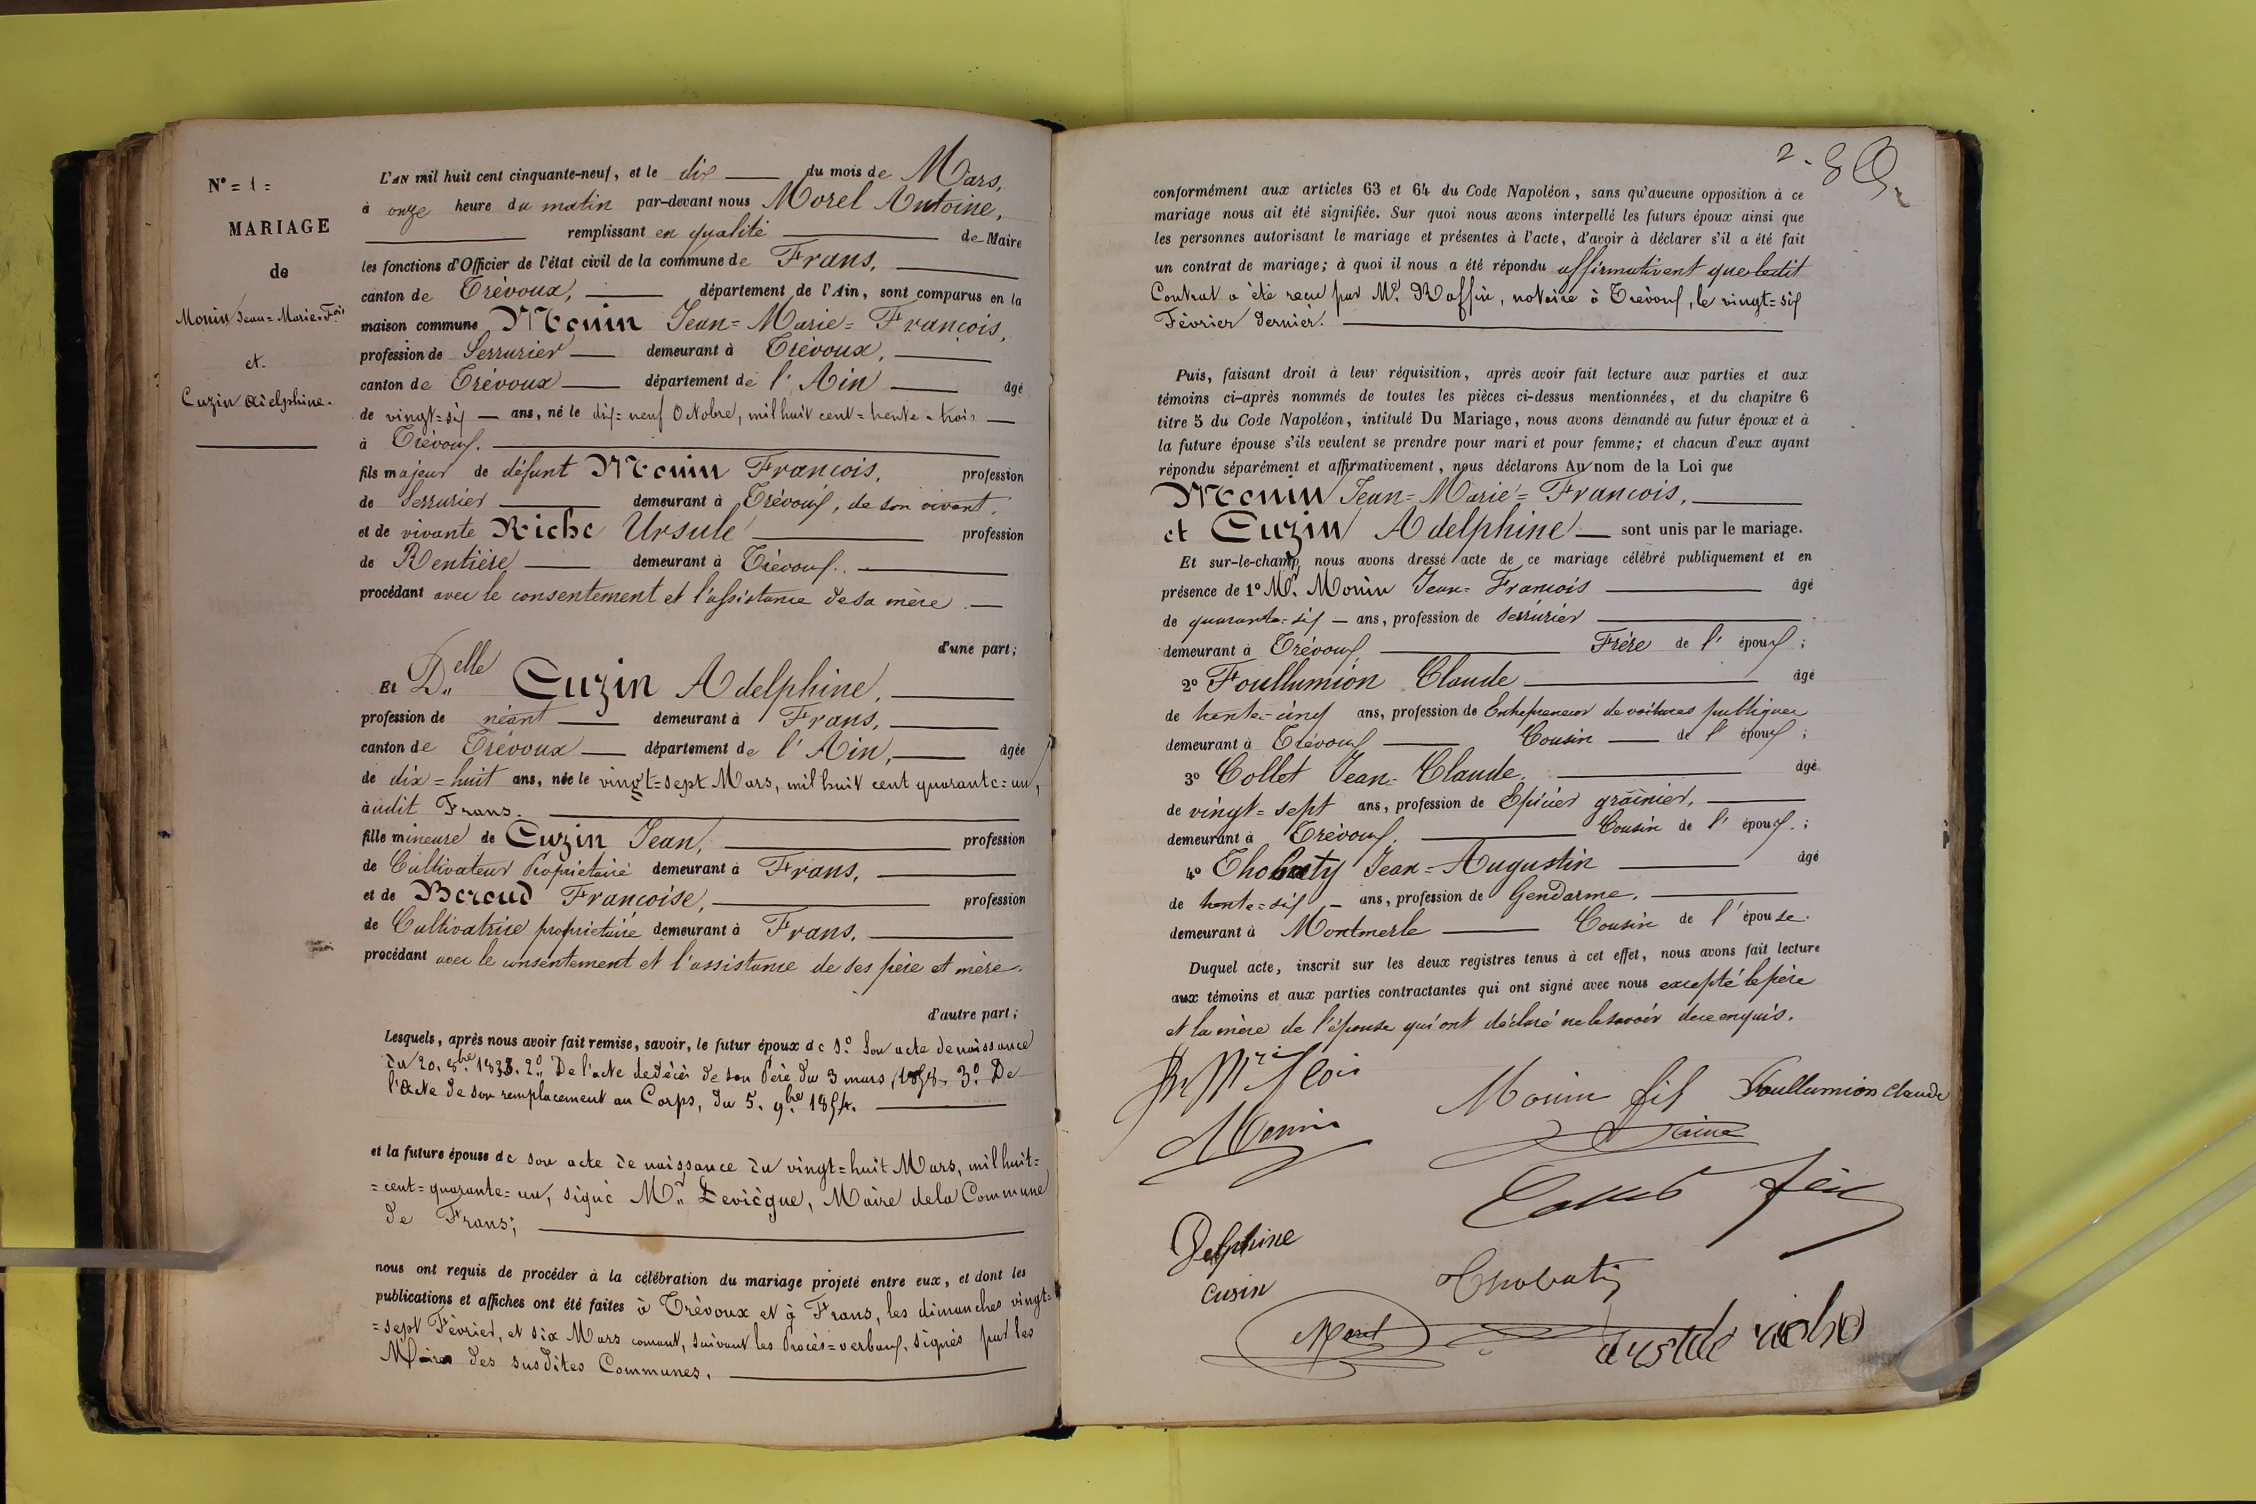 N° = 1 =
MARIAGE
de
Monin Jean=Marie=Fois
et
Cuzin Adelphine.
L'AN mil huit cent cinquante-neuf, et le dix du mois de Mars,
à onze heure du matin par-devant nous Morel Antoine,
remplissant en qualité de Maire
les fonctions d'Officier de l'état civil de la commune de Frans,
canton de Trévoux, département de l'Ain, sont comparus en la
maison commune Monin Jean=Marie=François,
profession de Serrurier demeurant à Trévoux,
canton de Trévoux département de l'Ain âgé
de vingt=six ans, né le dix=neuf Octobre, mil huit cent=trente=trois
à Trévoux.
fils majeur de défunt Monin François, profession
de Serrurier demeurant à Trévoux, de son vivant,
et de vivante Riche Ursule profession
de Rentière demeurant à Trévoux.
procédant avec le consentement et l'assistance de sa mère.
d'une part;
Et Delle Cuzin Adelphine,
profession de néant demeurant à Frans,
canton de Trévoux département de l'Ain, âgée
de dix=huit ans, née le vingt=sept Mars, mil huit cent quarante=un,
audit Frans.
fille mineure de Cuzin Jean, profession
de Cultivateur Propriétaire demeurant à Frans,
et de Beroud Francoise, profession
de Cultivatrice propriétaire demeurant à Frans.
procédant avec le consentement et l'assistance de ses père et mère.
d'autre part;
Lesquels, après nous avoir fait remise, savoir, le futur époux de 1.° Son acte de naissance
du 20. 8bre 1833. 2.° De l'acte de décès de son Père du 3 mars 1858. 3.° De
l'Acte de son remplacement au Corps, du 5. 9bre 1854.
et la future épouse de son acte de naissance du vingt=huit Mars, mil huit=
=cent=quarante=un, signé Mr. Leviègue, Maire de la Commune
de Frans;
nous ont requis de procéder à la célébration du mariage projeté entre eux, et dont les
publications et affiches ont été faites à Trévoux et à Frans, les dimanches vingt=
=sept Février, et six Mars courant, suivant les Procès=verbaux, signés par les
Maires des susdites Communes.
2.
conformément aux articles 63 et 64 du Code Napoléon, sans qu'aucune opposition à ce
mariage nous ait été signifiée. Sur quoi nous avons interpellé les futurs époux ainsi que
les personnes autorisant le mariage et présentes à l'acte, d'avoir à déclarer s'il a été fait
un contrat de mariage; à quoi il nous a été répondu affirmativent que ledit
Contrat a été reçu par Me. Raffin, notaire à Trévoux, le vingt=six
Février dernier.
Puis, faisant droit à leur réquisition, après avoir fait lecture aux parties et aux
témoins ci-après nommés de toutes les pièces ci-dessus mentionnées, et du chapitre 6
titre 5 du Code Napoléon, intitulé Du Mariage, nous avons demandé au futur époux et à
la future épouse s'ils veulent se prendre pour mari et pour femme; et chacun d'eux ayant
répondu séparément et affirmativement, nous déclarons Au nom de la Loi que
Monin Jean=Marie=Francois,
et Cuzin Adelphine sont unis par le mariage.
Et sur-le-champ, nous avons dressé acte de ce mariage célébré publiquement et en
présence de 1° Mr. Monin Jean=Francois âgé
de quarante=six ans, profession de Serrurier
demeurant à Trévoux, Frère de l'époux;
2° Foullumion Claude âgé
de trente=cinq ans, profession de Entrepreneur de voitures publiques
demeurant à Trévoux Cousin de l'époux;
3° Collet Jean=Claude, âgé
de vingt=sept ans, profession de Epicier grainier,
demeurant à Trévoux. Cousin de l'époux.;
4° Thobaty Jean=Augustin âgé
de trente=six ans, profession de Gendarme.
demeurant à Montmerle Cousin de l'épouse.
Duquel acte, inscrit sur les deux registres tenus à cet effet, nous avons fait lecture
aux témoins et aux parties contractantes qui ont signé avec nous excepté le père
et la mère de l'épouse qui ont déclaré ne le savoir de ce enquis.
Monin
Monin fils
ainé
Foullumion Claude
Delphine
cusin
Thobaty
Morel